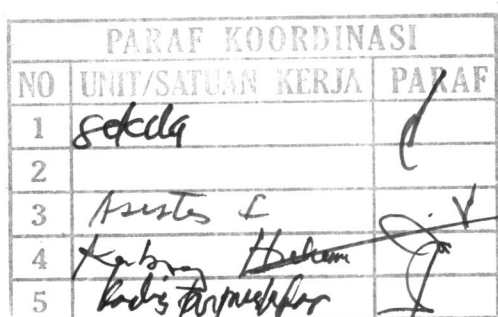 PARAF KOORDINASI
NO UNIT/SATUAN KERJA PARAF
1 Sekda
2
3 Asisten I
4 Kabag Hukum
5 Kadis